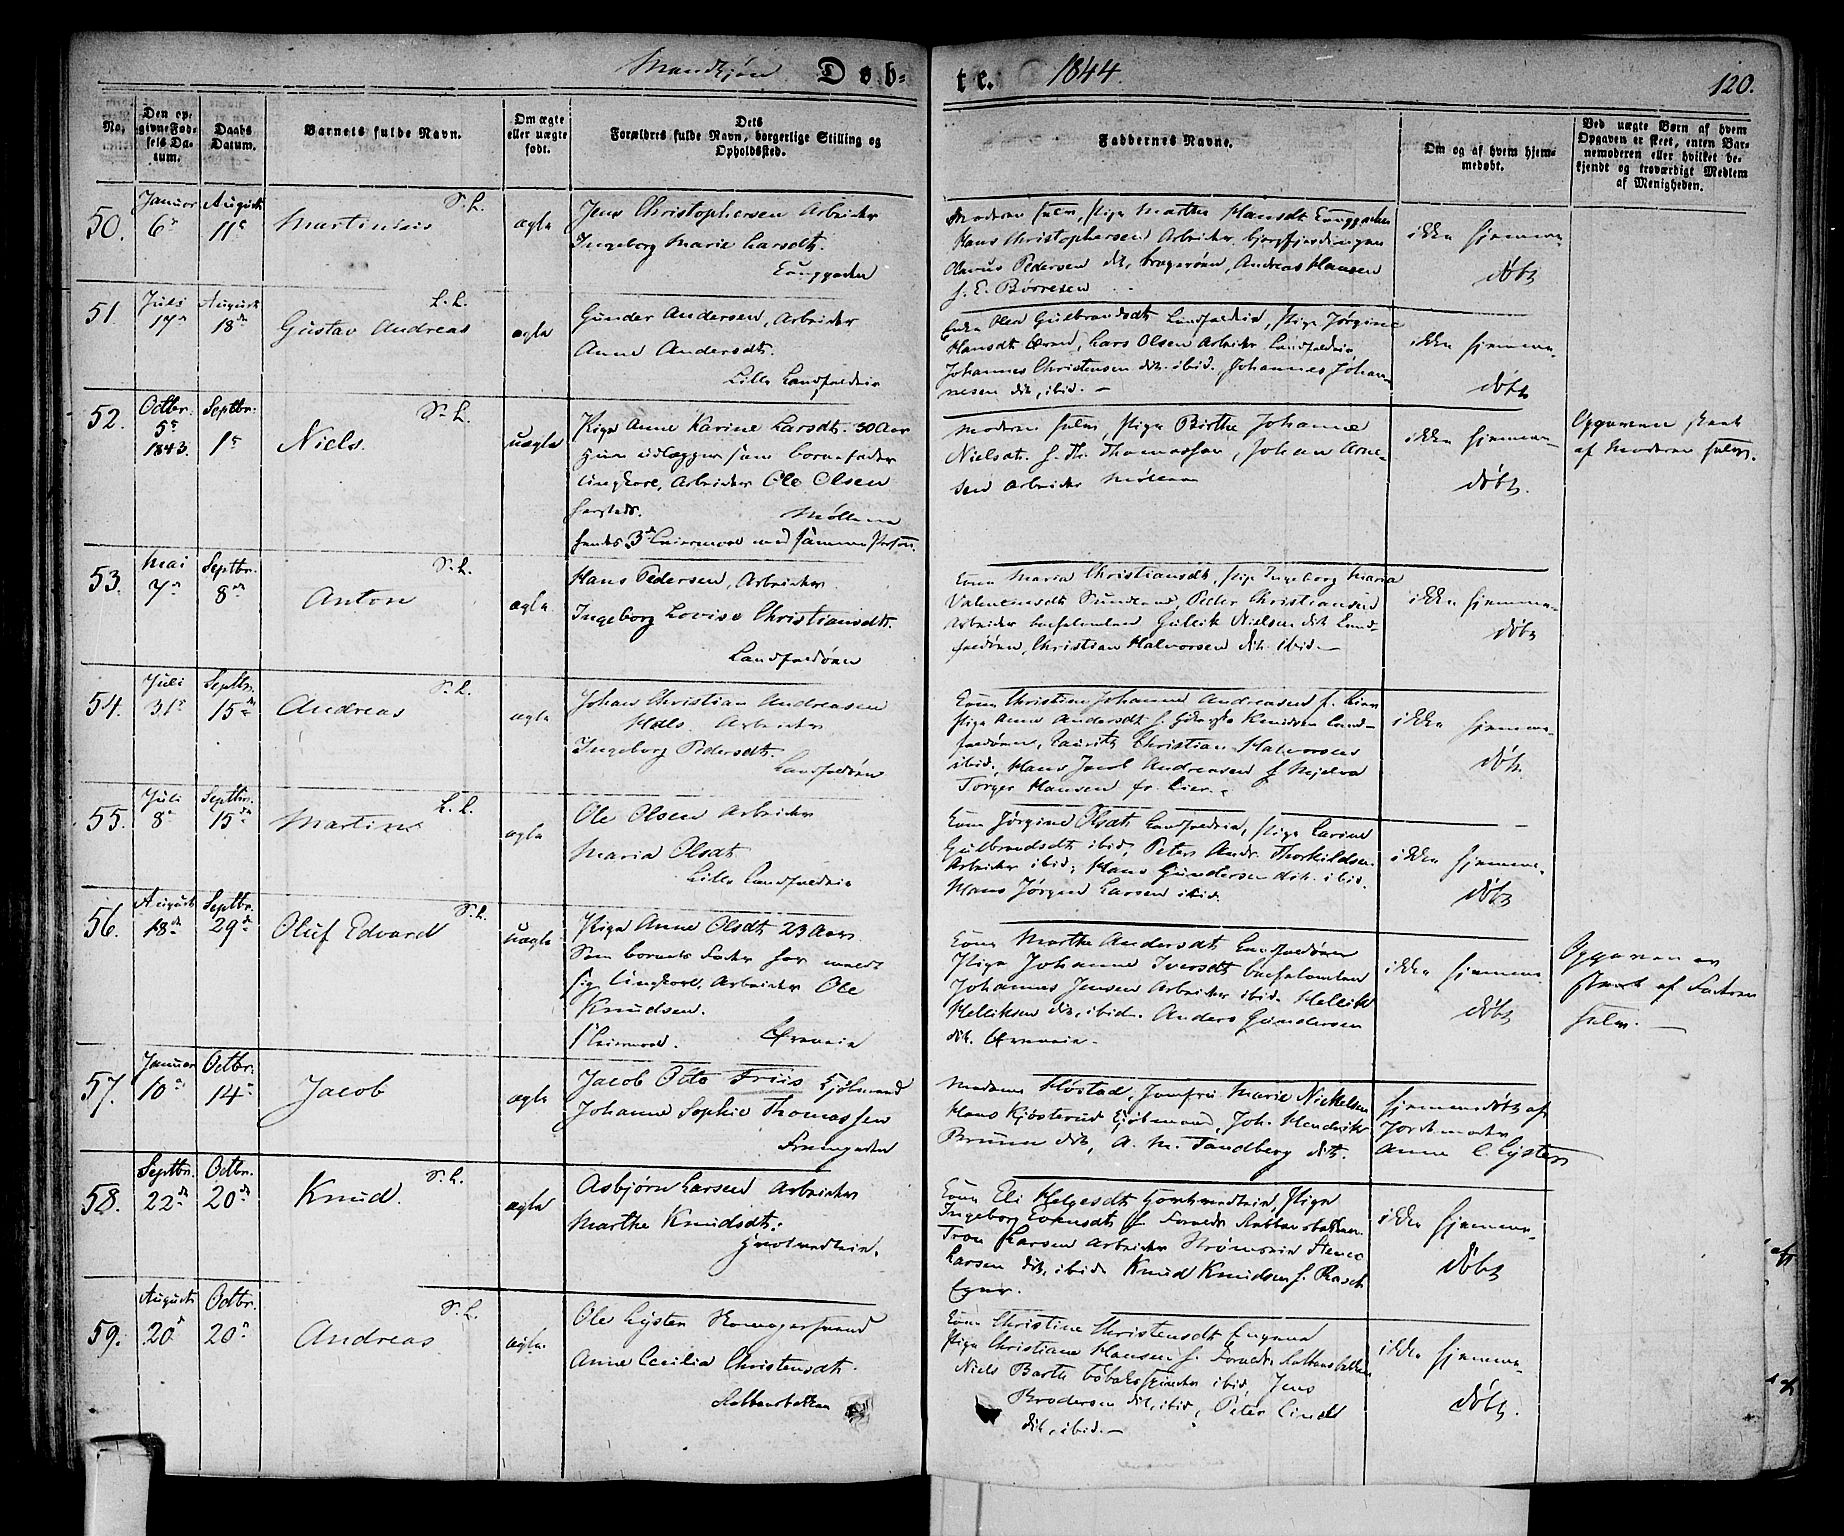 Mandkjøn Døb=
te. 1844. 120.
No.
Den op-
givne Fød-
sels Da-
tum.
Daabs
Datum.
Barnets fulde Navn.
Om ægte
eller uægte
født.
Dets
Forældres fulde Navn, borgerlige Stilling og
Opholdssted.
Faddernes Navne.
Om og af hvem hjem-
medøbt.
Ved uægte Børn af hvem
Opgaven er skeet, enten Bar-
nemoderen eller hvilket be-
kjendt og troværdigt Medlem
af Menigheden.
50.
Januar
6
August
11
S. L.
Martinius
ægte
Jens Christophersen Arbeider
Ingeborg Marie Larsdt.
Moderen selv, Pige Marthe Hansdt
Hans Christophersen Arbeider
Olaus Pedersen dit, Andreas Hansen
f. E. Børresen
ikke hjemme-
døbt
51
Juli
17
August
18
L. L.
Gustav Andreas
ægte
Gunder Andersen, Arbeider
Anne Andersdt.
Lille Landfaldøen
Enke Olea Gulbrandsdt Landfaldøen, Pige Jørgine
Hansdt, Lars Olsen Arbeider Landfaldøen
Johannes Christensen dit. ibid. Johannes Johan-
nesen dit, ibid. —
ikke hjemme-
døbt
52.
Octbr.
5
1843.
Septbr.
1
S. L.
Niels.
uægte
Pige Anne Karine Larsdt. 30 Aar
hun udlægger som barnefader
Ungkarl, Arbeider Ole Olsen
Møllerne
hendes 3 Leiermaal med samme Person.
Moderen selv, Pige Birthe Johanne
Nielsdt. f. Th. Thomassen, Johan Arne-
sen Arbeider Møllerne
ikke hjemme-
døbt.
Opgaven skeet
af Moderen selv.
53.
Mai
7
Septbr.
8
S. L.
Anton
ægte
Hans Pedersen, Arbeider
Ingeborg Lovise Christiansdt.
Landfaldøen
Kone Maria Christiansdt, Pige Ingeborg Maria
Valentinsdt Sundland, Peder Christiansen
Arbeider Gullik Nielsen dit Land-
faldøen, Christian Halvorsen dit. ibid. —
ikke hjemme-
døbt
54.
Juli
31
Septbr.
15
S. L.
Andreas
ægte
Johan Christian Andreasen
Arbeider
Ingeborg Pedersdt.
Landfaldøen
Kone Christine Johanne Andreasen f. Lier
Pige Anne Andersdt f. Knudsen Land-
faldøen, Lauritz Christian Halvorsen
ibid., Hans Jacob Andreasen f. Mjelva
Torger Hansen fr. Lier.
ikke hjemme-
døbt.
55.
Juli
8
Septbr.
15
L. L.
Martin
ægte
Ole Olsen Arbeider
Maria Olsdt
Lille Landfaldøen
Kone Jørgine Olsdt Landfaldøen, Pige Carine
Gulbrandsdt ibid, Peter Andr. Thorkildsen
Arbeider ibid, Hans Gundersen dit. ibid.
Hans Jørgen Larsen ibid.
ikke hjemme-
døbt
56.
August
18
Septbr.
29
S. L.
Oluf Edvard
uægte
Pige Anne Olsdt 23 Aar
Som barnets Fader har meldt
sig Ungkarl, Arbeider Ole
Knudsen.
1 Leiermaal.
Kone Marthe Andersdt Landfaldøen
Pige Johanne Iversdt
Johannes Jensen Arbeider ibid. Hellik
Helliksen dit, ibid. Anders Gundersen
dit.
ikke hjemme-
døbt
Opgaven er
skeet af Faderen
selv. —
57.
Januar
10
Octbr.
14
Jacob
ægte
Jacob Otto Friis Kjøbmand
Johanne Sophie Thomassen
Madame Høstad, Jomfru Marie Nickelsen
Hans Kjøsterud Kjøbmand, Joh. Hendrik
Bruun dit, A. M. Tandberg dit.
hjemmedøbt af
Jordemoder
Anne C Lysten
58.
Septbr.
22
Octbr.
20
S. L.
Knud.
ægte
Asbjørn Larsen Arbeider
Marthe Knudsdt.
Kone Eli Helgesdt Pige
Ingeborg
Tron Larsen Arbeider Strømsøen Steen
Larsen dit, ibid. Knud Knudsen f. Rasch
ikke hjemme-
døbt
59.
August
20
Octbr.
20
S. L.
Andreas
ægte.
Ole Lysten
Anne Cecilia Christensdt.
Kone Christine Christensdt
Pige Christiane Hansen f.
Niels Barth ibid, Jens
Brodersen dit, ibid, Peter Lindt
dit, ibid. —
ikke hjemme-
døbt.